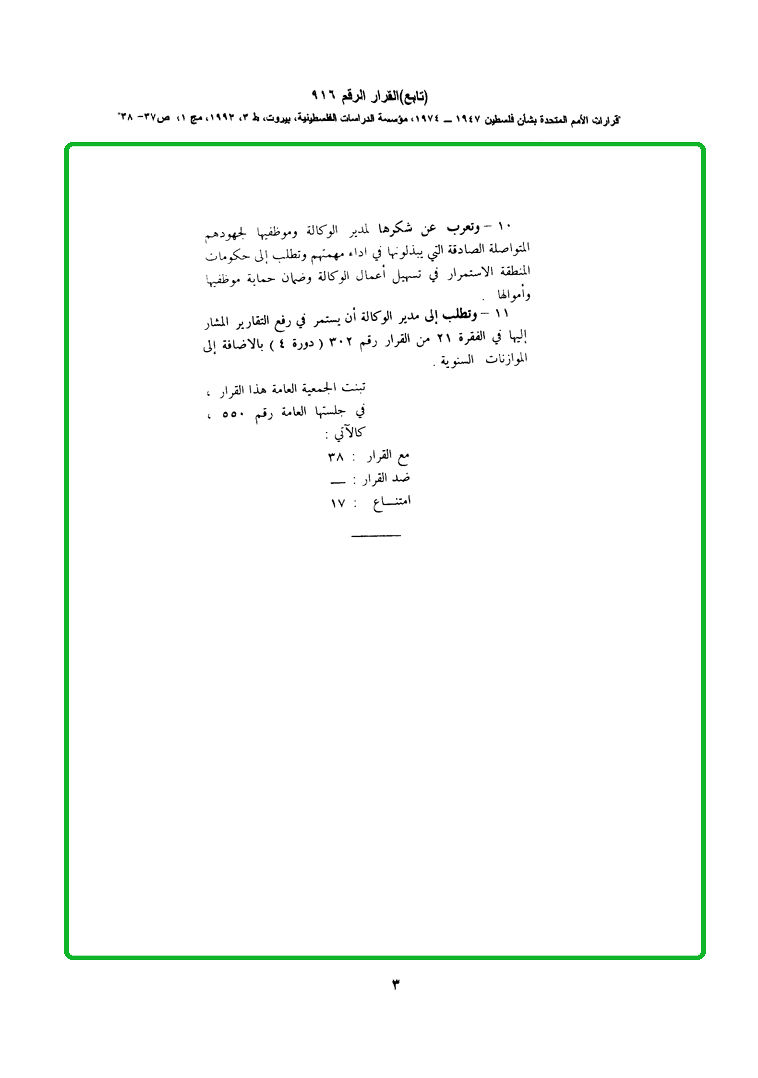 (تابع)القرار الرقم ٩١٦
"قرارات الأمم المتحدة بشأن فلسطين ١٩٤٧ ــ ١٩٧٤، مؤسسة الدراسات الفلسطينية، بيروت، ط ٣، ١٩٩٣، مج ١، ص٣٧- ٣٨"
١٠ – وتعرب عن شكرها لمدير الوكالة وموظفيها لجهودهم
المتواصلة الصادقة التي يبذلونها في اداء مهمتهم وتطلب إلى حكومات
المنطقة الاستمرار في تسهيل أعمال الوكالة وضمان حماية موظفيها
وأموالها .
١١ – وتطلب إلى مدير الوكالة أن يستمر في رفع التقارير المشار
إليها في الفقرة ٢١ من القرار رقم ٣٠٢ ( دورة ٤ ) بالاضافة إلى
الموازنات السنوية .
تبنت الجمعية العامة هذا القرار ،
في جلستها العامة رقم ٥٥٠ ،
كالآتي :
مع القرار : ٣٨
ضد القرار : ــ
امتنـــاع : ١٧
٣